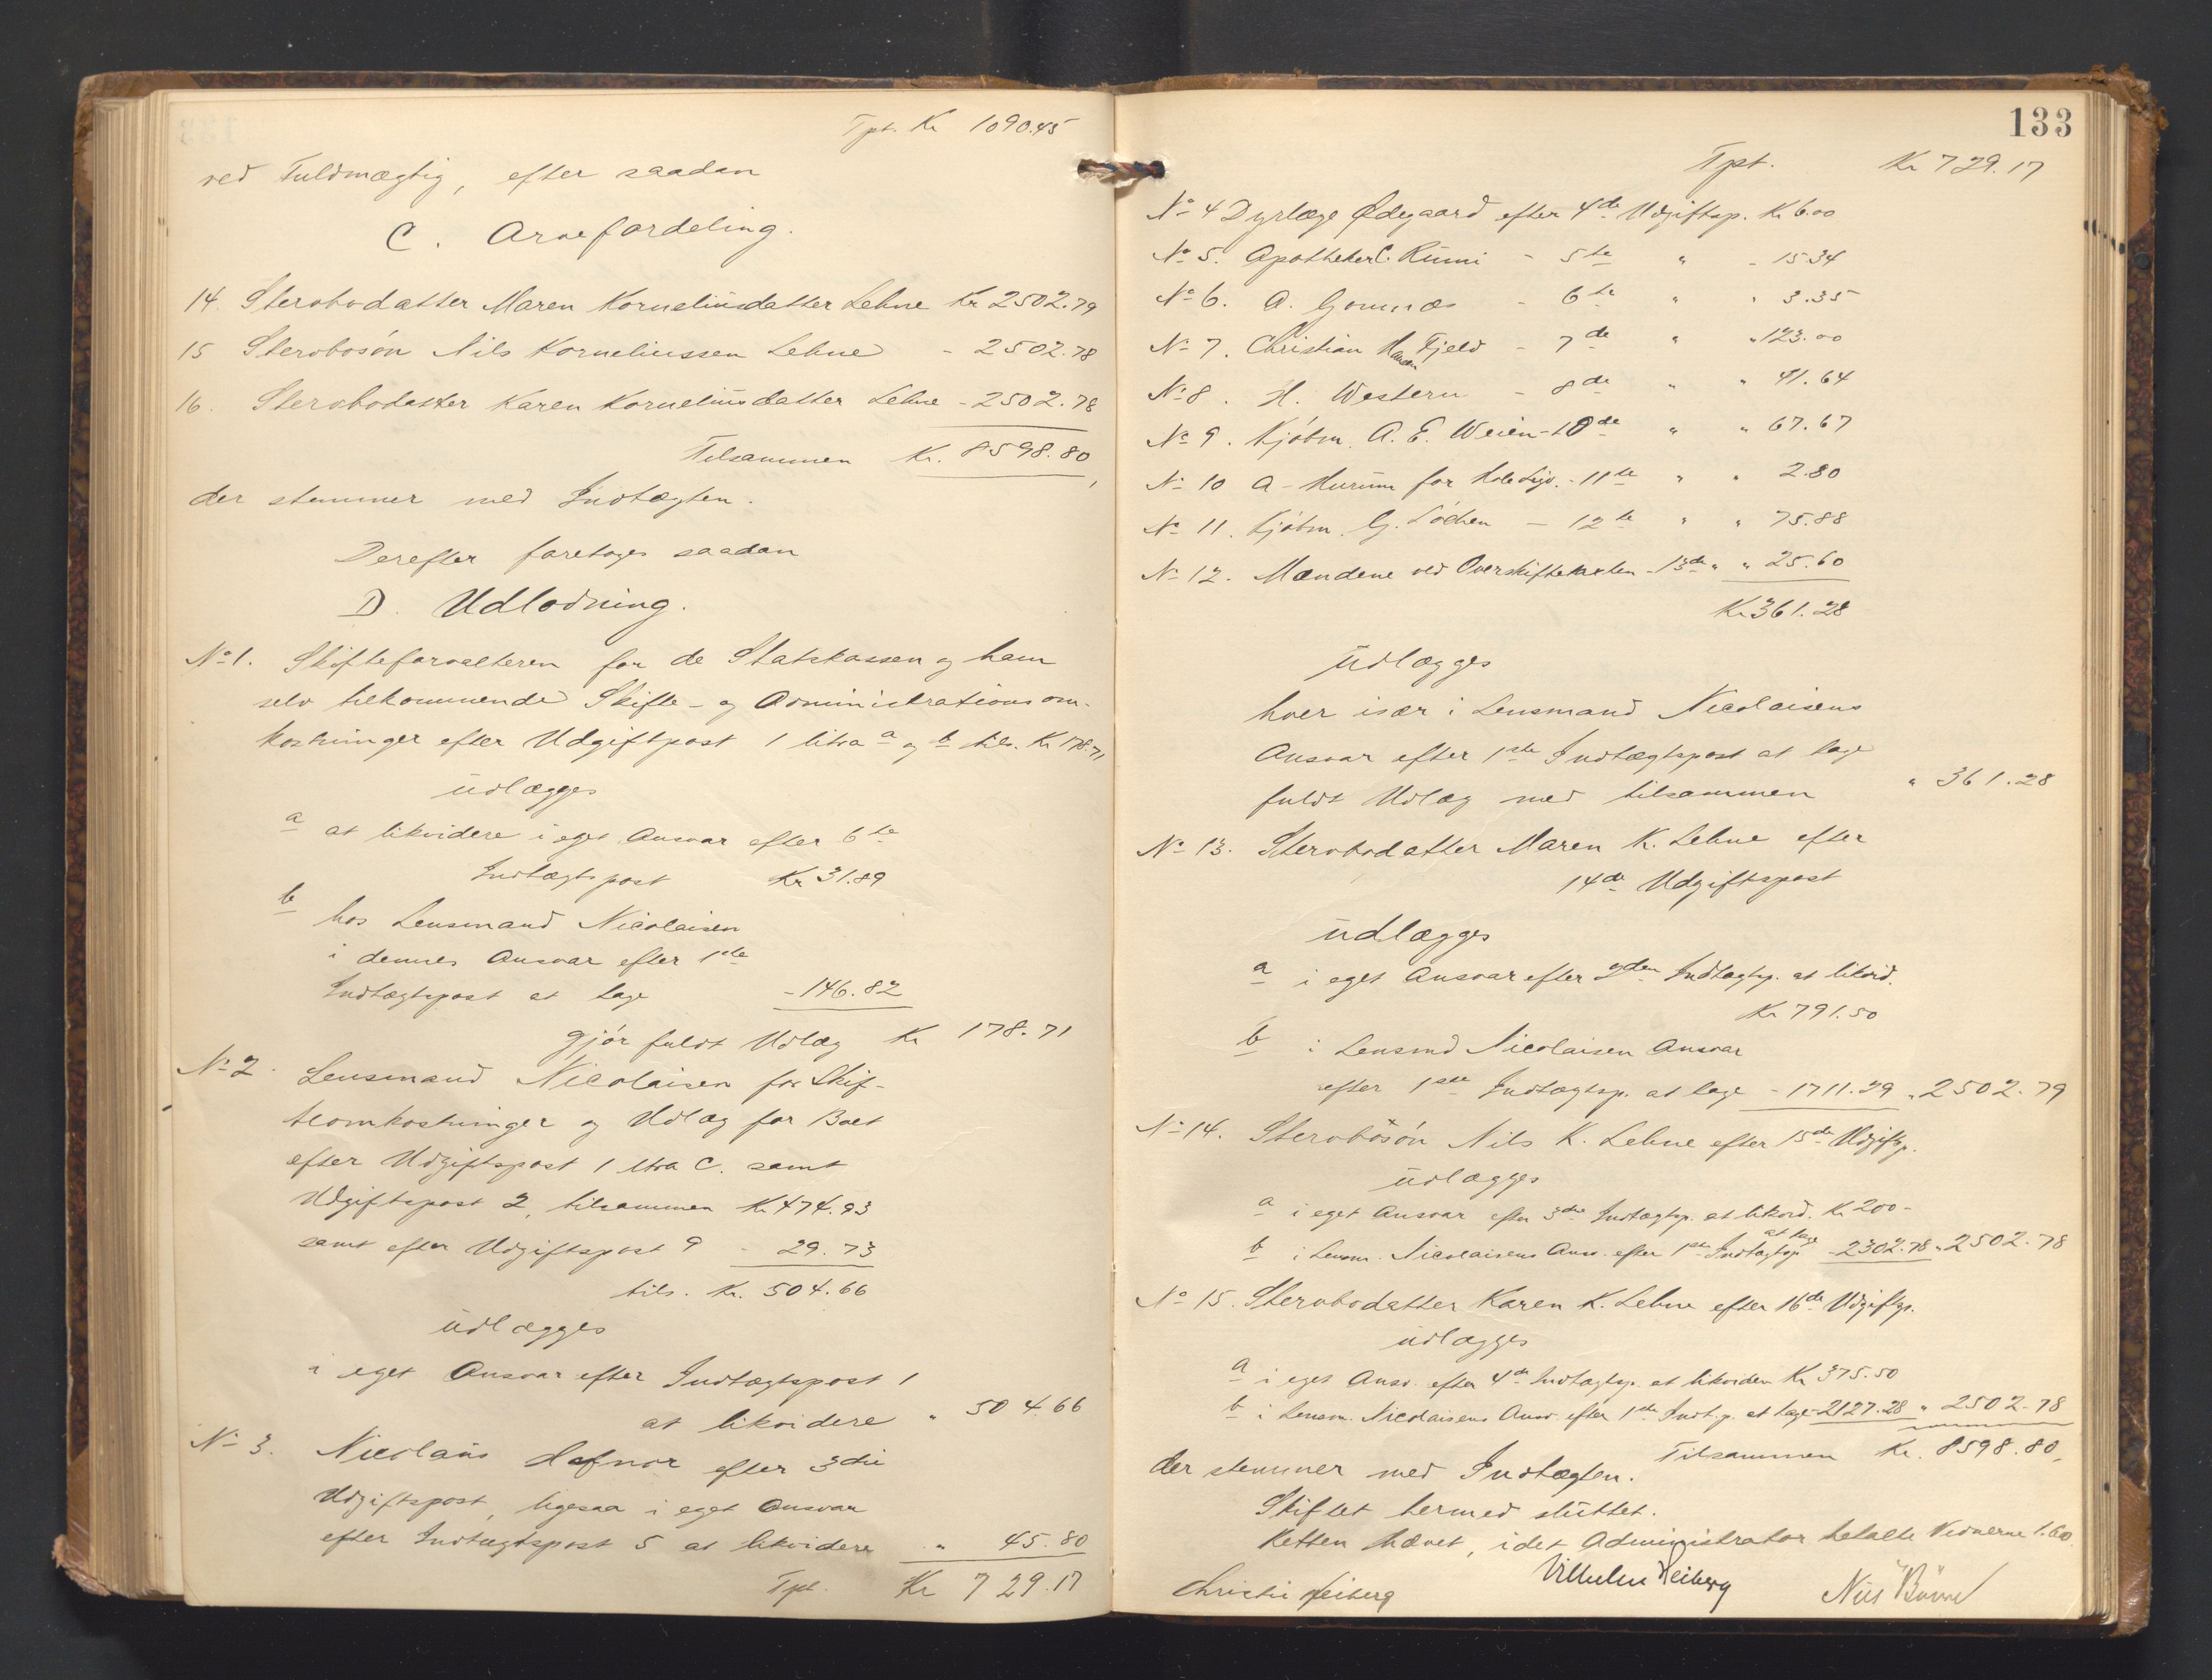 Tpt. Kr 1090.45
ved Fuldmægtig, efter saadan
C. Arvefordeling.
14. Stervbodatter Maren Korneliusdatter Lehne Kr 2502.79
15 Stervbosøn Nils Korneliussen Lehne - 2502.78
16. Stervbodatter Karen Korneliusdatter Lehne - 2502.78
Tilsammen Kr. 8598.80,
der stemmer med Indtægten.
Derefter foretages saadan
D. Udlodning.
No 1. Skifteforvalteren for de Statskassen og ham
selv tilkommende Skifte- og Administrationsom-
kostninger efter Udgiftpost 1 litra a og b tils. Kr 178.71
udlægges
a at likvidere i eget Ansvar efter 6te
Indtægtspost Kr 31.89
b hos Lensmand Nicolaisen
i dennes Ansvar efter 1ste
Indtægtspost at tage - 146.82
gjør fuldt Udlæg Kr 178.71
No 2. Lensmand Nicolaisen for Skif-
teomkostninger og Udlæg for Boet
efter Udgiftspost 1 litra C. samt
Udgiftspost 2, tilsammen Kr 474.93
samt efter Udgiftspost 9 - 29.73
tils. Kr. 504.66
udlægges
i eget Ansvar efter Indtægtspost 1
at likvidere " 504.66
No 3. Nicolaus Hafnor efter 3die
Udgiftspost, ligesaa i eget Ansvar
efter Indtægtspost 5 at likvidere " 45.80
Tpt. Kr 729.17
133
Tpt. Kr 729.17
No 4 Dyrlæge Ødegaard efter 4de Udgiftsp. Kr 6.00
No 5. Apotheker C. Rumi - 5te " - 15.34
No 6. A. Gomnæs - 6te " " 3.35
No 7. Christian Hansen Fjeld - 7de " " 123.00
No 8. H. Western - 8de " " 41.64
No 9. Kjøbm. A. E. Weien - 10de " " 67.67
No 10 A. Hurum for Hole Ligv. - 11te " " 2.80
No 11. Kjøbm. G. Løchen - 12te " " 75.88
No 12. Mændene ved Overskiftetaxten - 13de " " 25.60
Kr 361.28
udlægges
hver især i Lensmand Nicolaisens
Ansvar efter 1ste Indtægtspost at tage
fuldt Udlæg med tilsammen " 361.28
No 13. Stervbodatter Maren K. Lehne efter
14de Udgiftspost
udlægges
a i eget Ansvar efter 2den Indtægtsp. at likvid.
Kr 791.50
b i Lensmd Nicolaisen Ansvar
efter 1ste Indtægtsp. at tage - 1711.29 " 2502.79
No 14. Stervbosøn Nils K. Lehne efter 15de Udgiftsp.
udlægges
a i eget Ansvar efter 3die Indtægtsp. at likvid. Kr 200 -
b i Lensm. Nicolaisens Ansv. efter 1ste Indtægtsp at tage - 2302.78 " 2502.78
No 15. Stervbodatter Karen K. Lehne efter 16de Udgiftsp.
udlægges
a i eget Ansv. efter 4de Indtægtsp. at likvidere Kr 375.50
b i Lensm. Nicolaisens Ansv. efter 1ste Indt.p. at tage - 2127.28 " 2502.78
Tilsammen Kr. 8598.80,
der stemmer med Indtægten.
Skiftet hermed sluttet.
Retten hævet, idet Administrator betalte Vidnerne 1.60.
Christie Heiberg Vilhelm Heiberg Nils